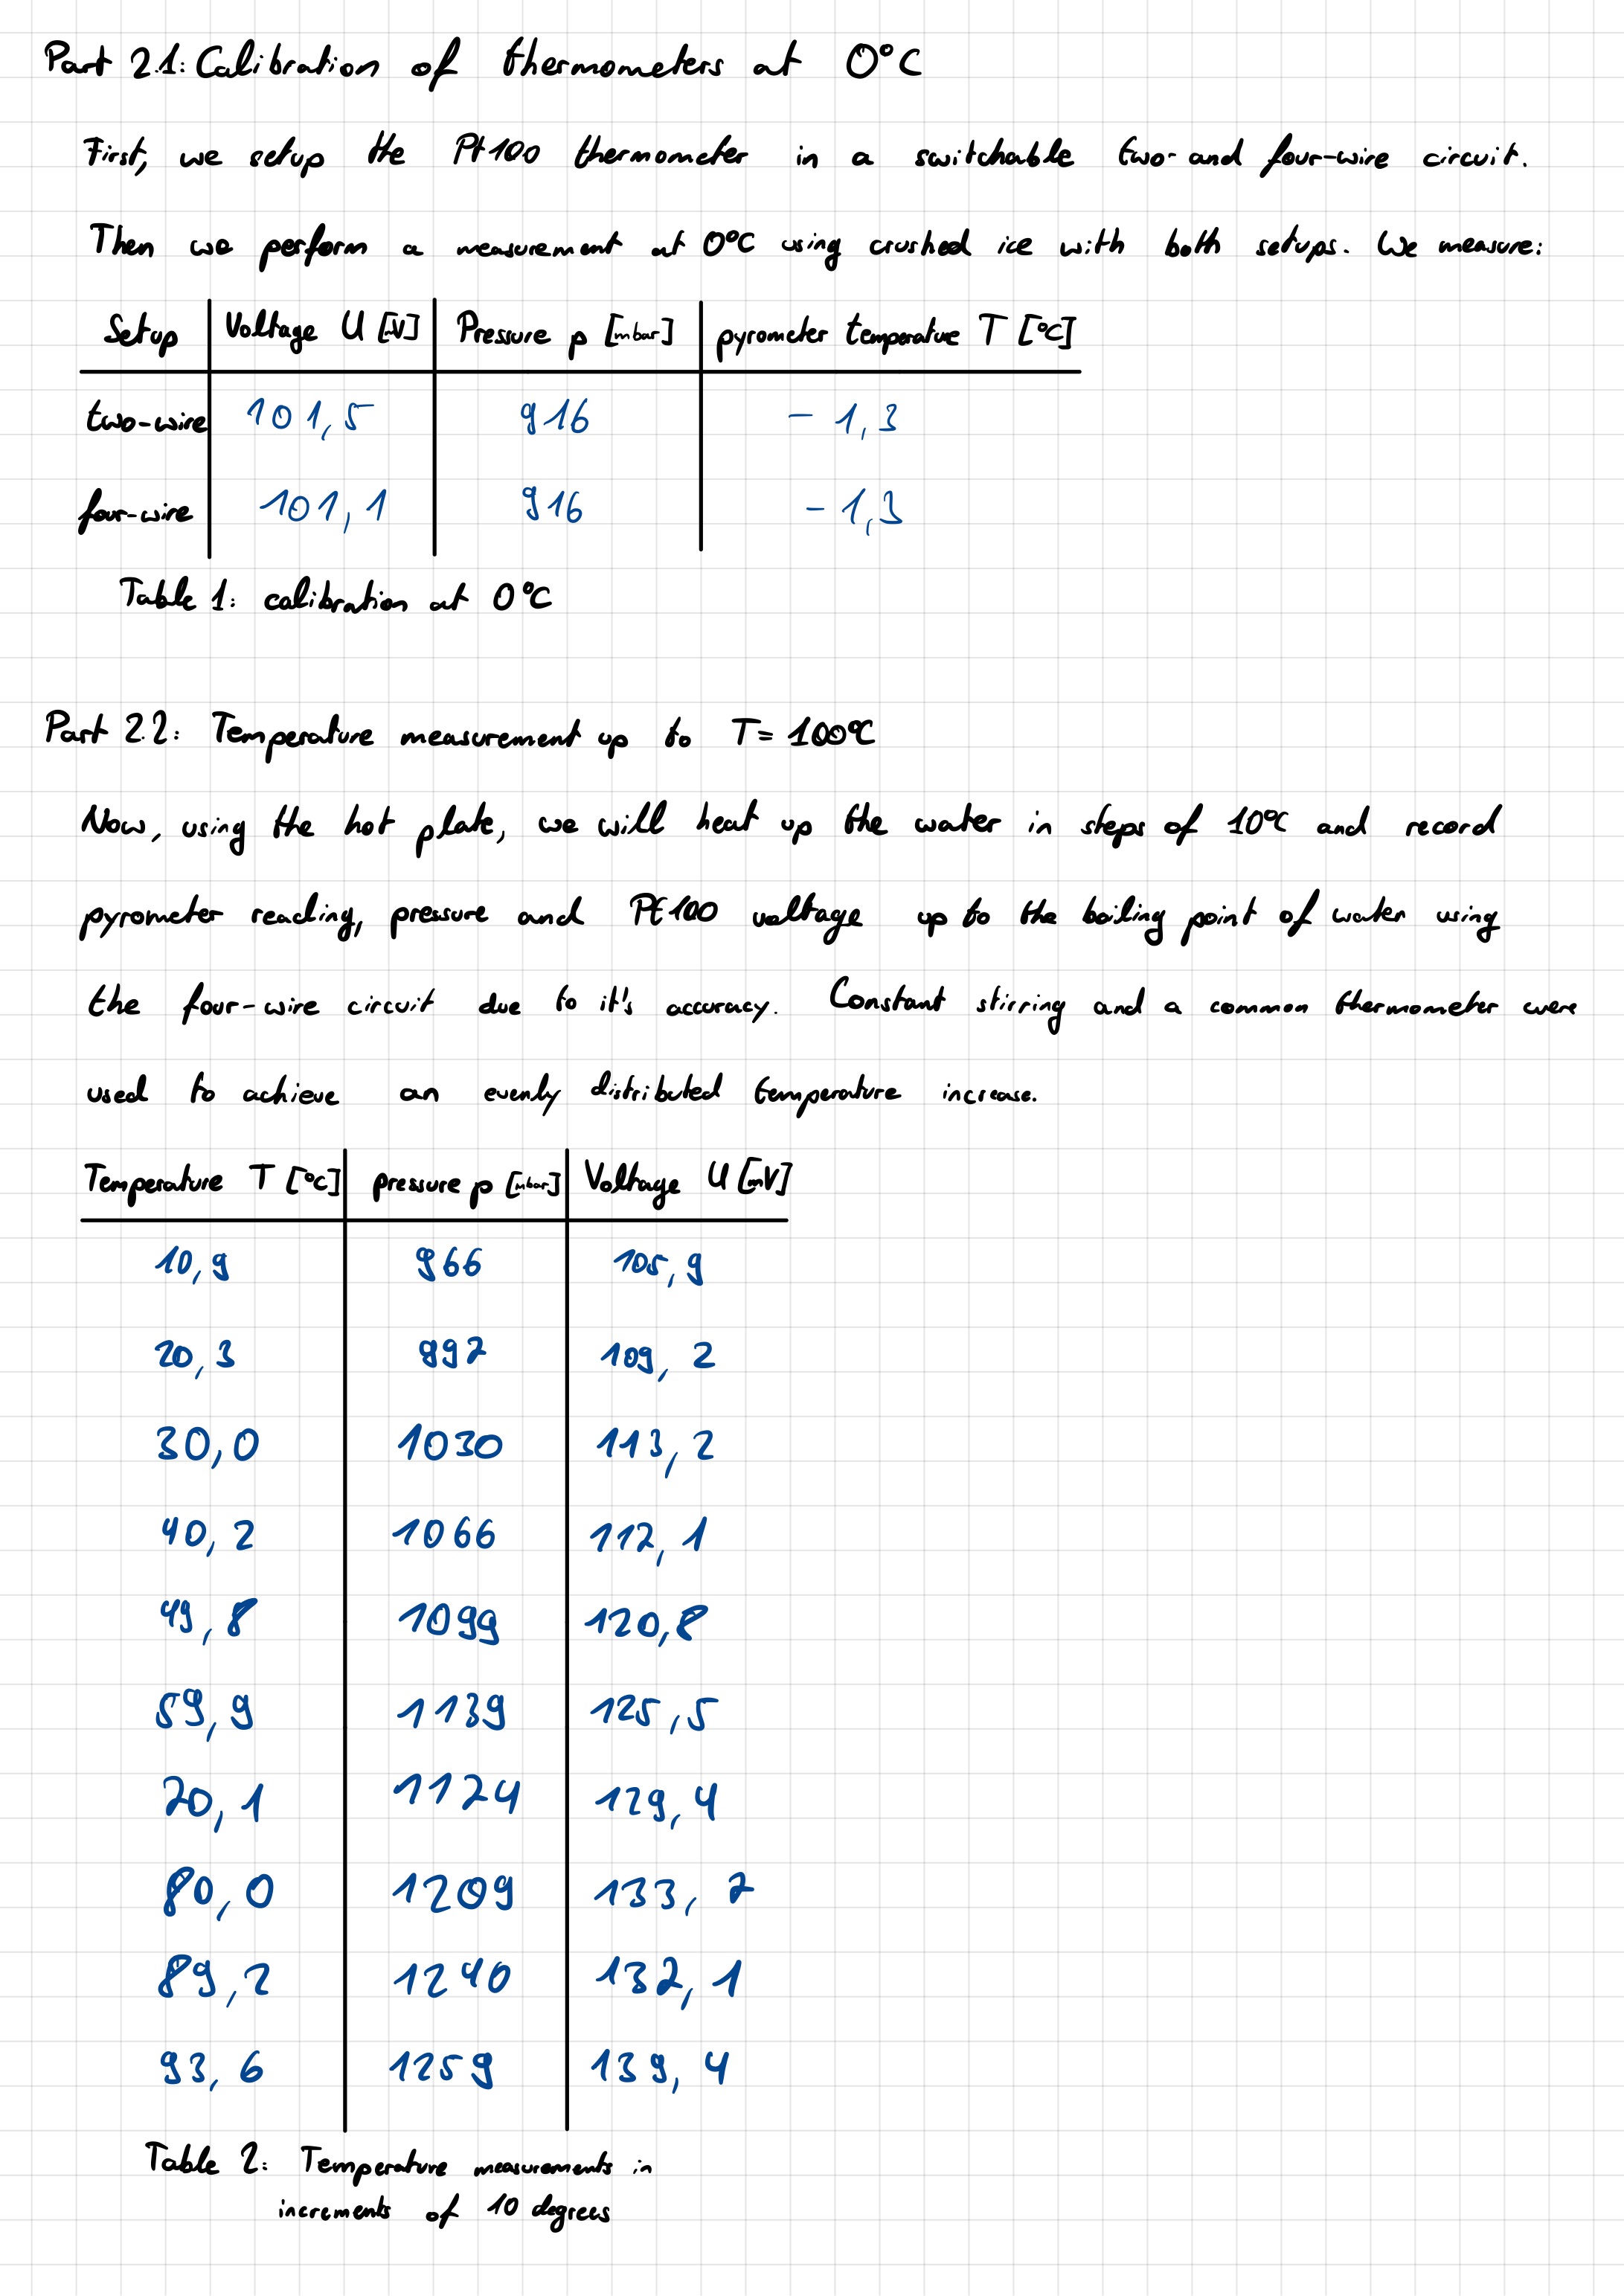 Part 2.1: Calibration of thermometers at 0°C
First, we setup the Pt100 thermometer in a switchable two- and four-wire circuit.
Then we perform a measurement at 0°C using crushed ice with both setups. We measure:
Setup Voltage U [mV] Pressure p [mbar] pyrometer temperature T [°C]
two-wire 101,5 916 -1,3
four-wire 101,1 916 -1,3
Table 1: calibration at 0°C
Part 2.2: Temperature measurement up to T = 100°C
Now, using the hot plate, we will heat up the water in steps of 10°C and record
pyrometer reading, pressure and Pt100 voltage up to the boiling point of water using
the four-wire circuit due to it's accuracy. Constant stirring and a common thermometer were
used to achieve an evenly distributed temperature increase.
Temperature T [°C] pressure p [mbar] Voltage U [mV]
10,9 966 105,9
20,3 997 109,7
30,0 1030 113,2
40,2 1066 117,1
49,8 1099 120,8
59,9 1139 125,5
70,1 1174 129,4
80,0 1209 133,7
89,2 1240 137,1
93,6 1259 139,4
Table 2: Temperature measurements in
increments of 10 degrees